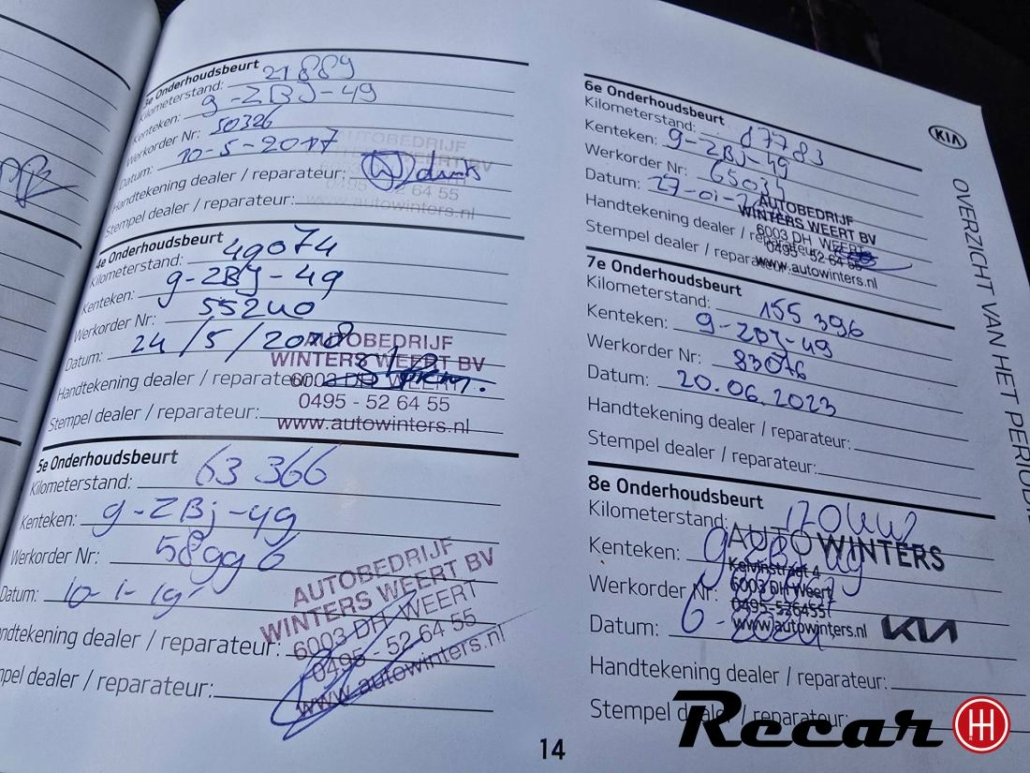 3e Onderhoudsbeurt
Kilometerstand: 21889
Kenteken: 9-ZBJ-49
Werkorder Nr: 50326
Datum: 10-5-2017
Handtekening dealer / reparateur:
Stempel dealer / reparateur:
AUTOBEDRIJF
WINTERS WEERT BV
0495 - 52 64 55
www.autowinters.nl
4e Onderhoudsbeurt
Kilometerstand: 49074
Kenteken: 9-ZBJ-49
Werkorder Nr: 55240
Datum: 24/5/2018
Handtekening dealer / reparateur:
Stempel dealer / reparateur:
AUTOBEDRIJF
WINTERS WEERT BV
6003 DH WEERT
0495 - 52 64 55
www.autowinters.nl
5e Onderhoudsbeurt
Kilometerstand: 63366
Kenteken: 9-ZBj-49
Werkorder Nr: 58996
Datum: 10-1-19
Handtekening dealer / reparateur:
Stempel dealer / reparateur:
AUTOBEDRIJF
WINTERS WEERT BV
6003 DH WEERT
0495 - 52 64 55
www.autowinters.nl
14
6e Onderhoudsbeurt
Kilometerstand: 87783
Kenteken: 9-ZBJ-49
Werkorder Nr:
Datum: 27-01-
Handtekening dealer / reparateur:
Stempel dealer / reparateur:
AUTOBEDRIJF
WINTERS WEERT BV
6003 DH WEERT
0495 - 52 64 55
www.autowinters.nl
7e Onderhoudsbeurt
Kilometerstand: 155396
Kenteken: 9-ZBJ-49
Werkorder Nr: 83076
Datum: 20.06.2023
Handtekening dealer / reparateur:
Stempel dealer / reparateur:
8e Onderhoudsbeurt
Kilometerstand:
Kenteken:
Werkorder Nr:
Datum:
Handtekening dealer / reparateur:
Stempel dealer / reparateur:
AUTO WINTERS
Kelvinstraat 4
6003 DH Weert
0495-526455
www.autowinters.nl
KIA
KIA
OVERZICHT VAN HET
Recar